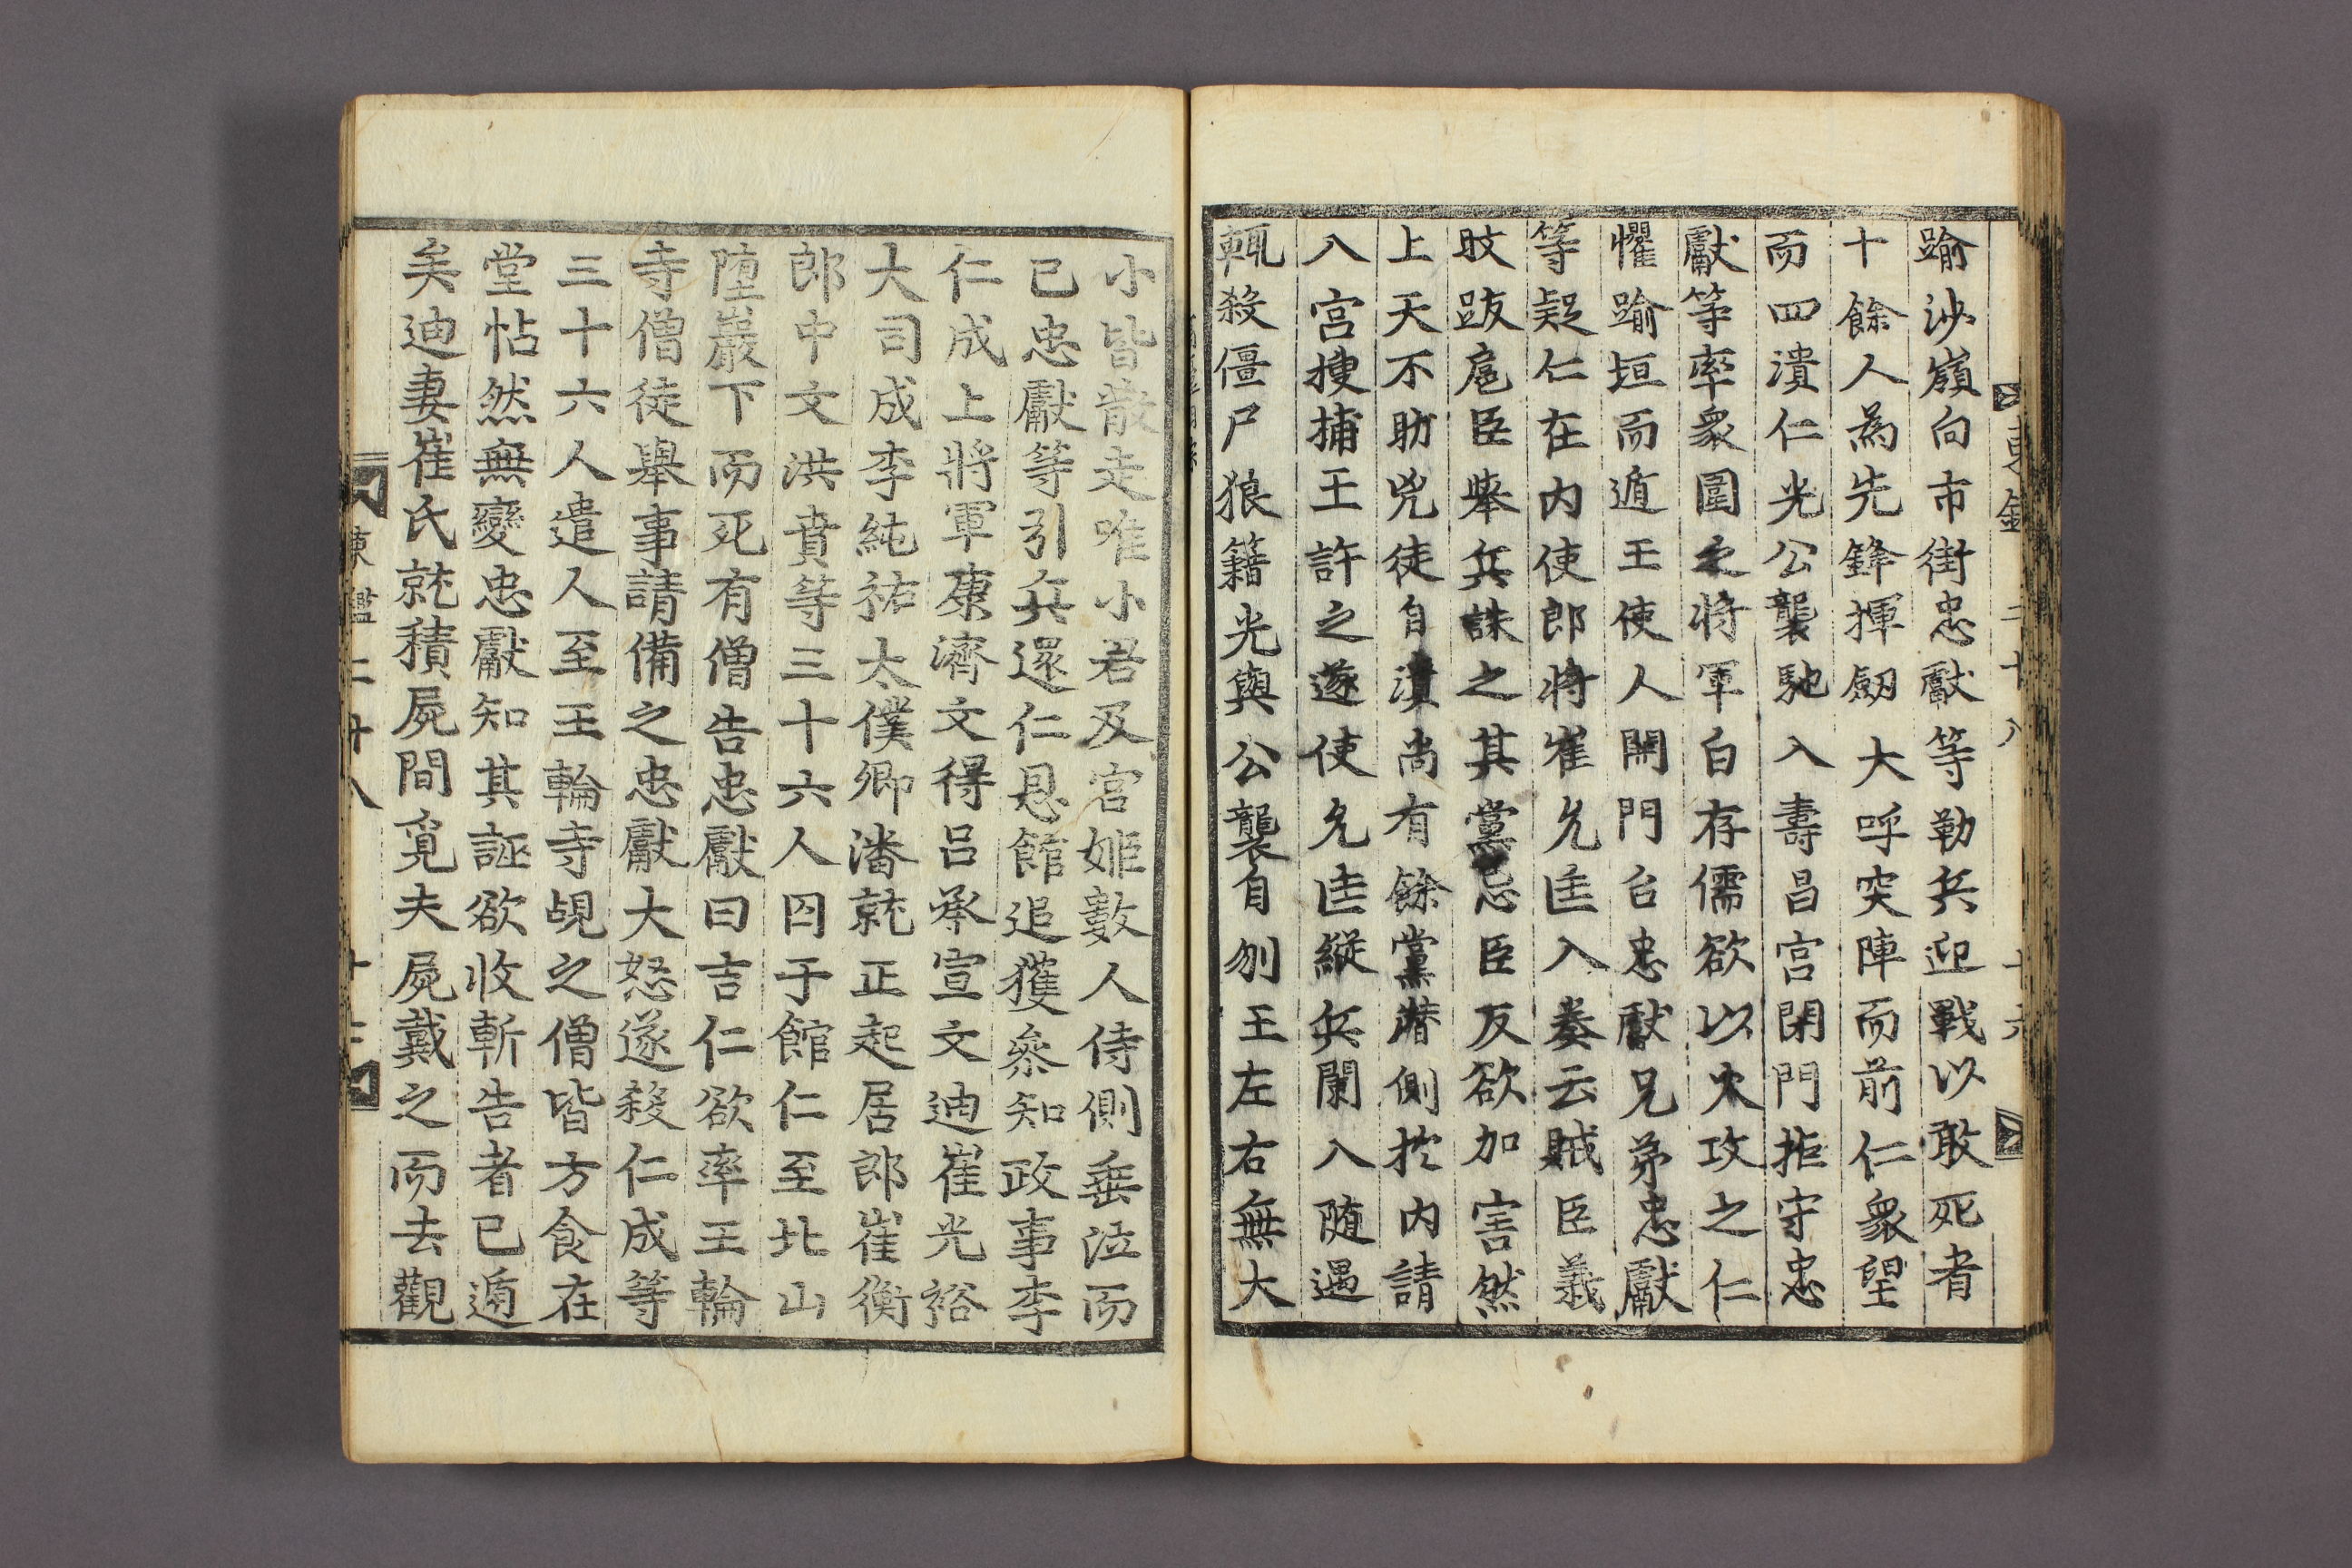 踰沙嶺向市街忠獻等勒兵迎戰以敢死者
十餘人爲先鋒揮劒大呼突陣而前仁衆望
而四潰仁光公襲馳入壽昌宮閉門拒守忠
獻等率衆圍之將軍白存儒欲以火攻之仁
懼踰垣而遁王使人開門台忠獻兄弟忠獻
等疑仁在内使郎將崔允匡入奏云賊臣義
旼跋扈臣擧兵誅之其黨忌臣反欲加害然
上天不助兇徒自潰尚有餘黨潜側於内請
入宮搜捕王許之遂使允匡縱兵闌入随遇
輒殺僵尸狼籍光與公襲自刎王左右無大
東鑑 二十八
小皆散走唯小君及宮姬數人侍側垂泣而
已忠獻等引兵還仁恩館追獲叅知政事李
仁成上將軍康濟文得呂承宣文迪崔光裕
大司成李純祐太僕卿潘就正起居郎崔衡
郎中文洪賁等三十六人囚于館仁至北山
墮巖下而死有僧告忠獻曰吉仁欲率王輪
寺僧徒擧事請備之忠獻大怒遂殺仁成等
三十六人遣人至王輪寺覘之僧皆方食在
堂帖然無變忠獻知其誣欲收斬告者已遁
矣迪妻崔氏就積屍間覓夫屍戴之而去觀
東鑑二十八